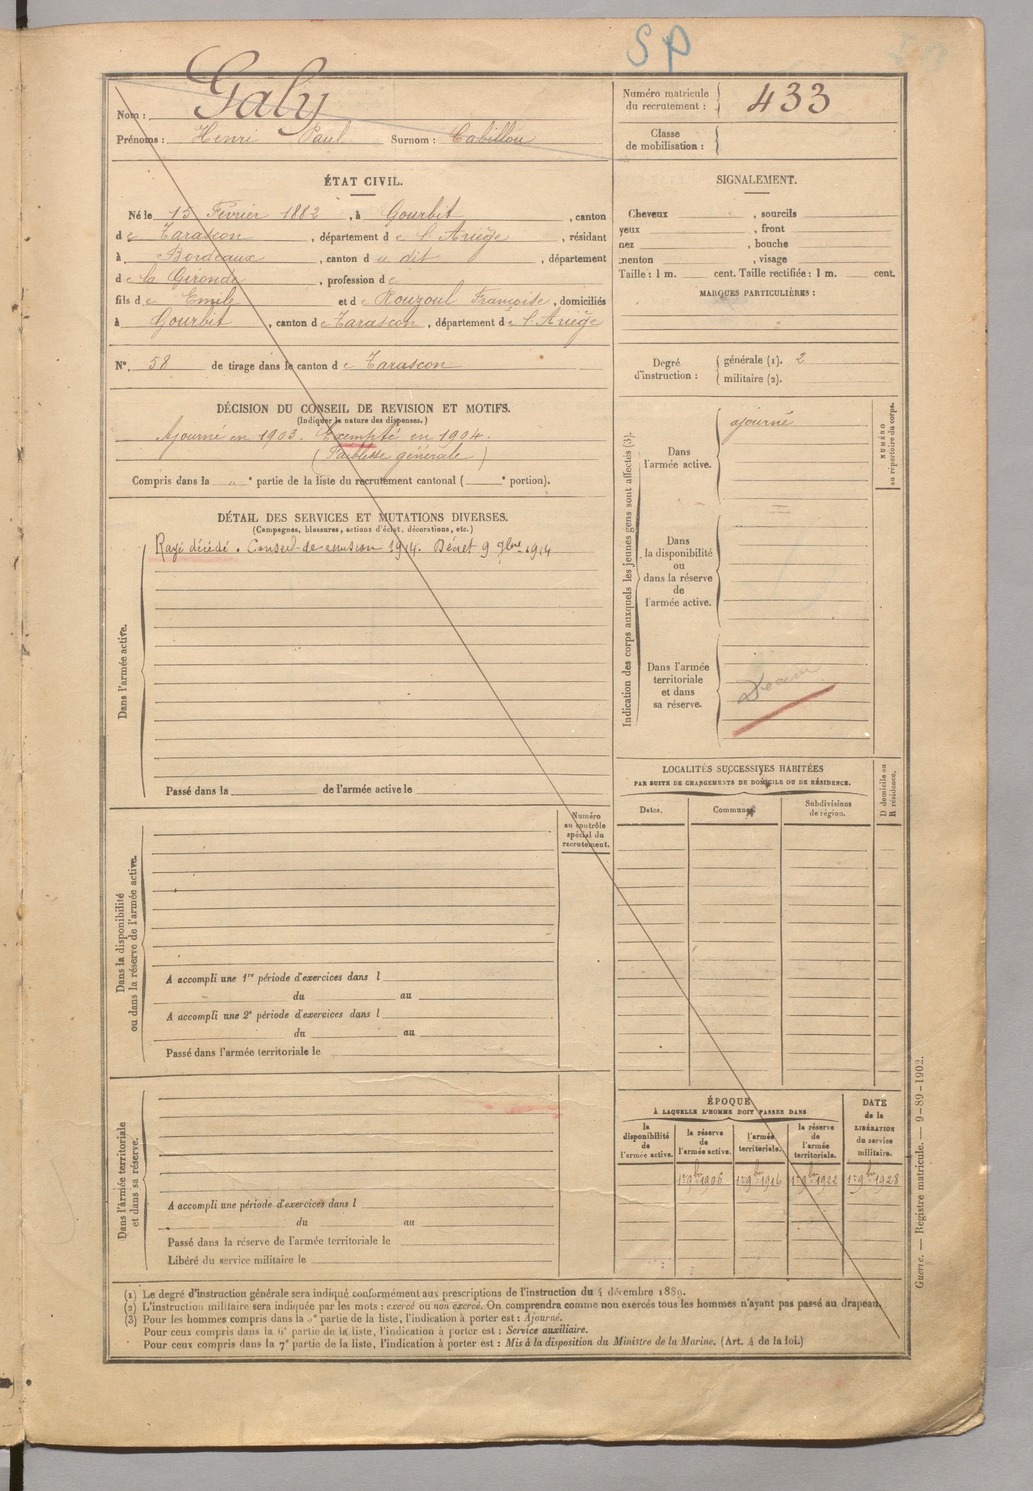 SP
Nom : Galy
Prénoms : Henri Paul Surnom : Cabillou
Numéro matricule du recrutement : 433
Classe de mobilisation :
ÉTAT CIVIL.
Né le 15 Février 1882, à Gourbit, canton
de Tarascon, département de l'Ariège, résidant
à Bordeaux, canton du dit, département
de la Gironde, profession de
fils de Emile et de Rouzoul Françoise, domiciliés
à Gourbit, canton de Tarascon, département de l'Ariège
N° 58 de tirage dans le canton de Tarascon
DÉCISION DU CONSEIL DE REVISION ET MOTIFS.
(Indiquer la nature des dispenses.)
Ajourné en 1903. Exempté en 1904.
(Faiblesse générale)
Compris dans la " e partie de la liste du recrutement cantonal ( e portion).
DÉTAIL DES SERVICES ET MUTATIONS DIVERSES.
(Campagnes, blessures, actions d'éclat, décorations, etc.)
Rayé décédé. Conseil de revision 1914. Décret 9 7bre 1914
Dans l'armée active.
Passé dans la de l'armée active le
Numéro au contrôle spécial du recrutement.
Dans la disponibilité ou dans la réserve de l'armée active.
A accompli une 1re période d'exercices dans l
du au
A accompli une 2e période d'exercices dans l
du au
Passé dans l'armée territoriale le
Dans l'armée territoriale et dans sa réserve.
A accompli une période d'exercices dans l
du au
Passé dans la réserve de l'armée territoriale le
Libéré du service militaire le
SIGNALEMENT.
Cheveux , sourcils
yeux , front
nez , bouche
menton , visage
Taille : 1 m. cent. Taille rectifiée : 1 m. cent.
MARQUES PARTICULIÈRES :
Degré d'instruction : générale (1). 2
militaire (2).
Indication des corps auxquels les jeunes gens sont affectés (3).
NUMÉRO au répertoire du corps.
Dans l'armée active.
ajourné
Dans la disponibilité ou dans la réserve de l'armée active.
Dans l'armée territoriale et dans sa réserve.
LOCALITÉS SUCCESSIVES HABITÉES
PAR SUITE DE CHANGEMENTS DE DOMICILE OU DE RÉSIDENCE.
D domicile ou R résidence.
Dates. Communes. Subdivisions de région.
ÉPOQUE
À LAQUELLE L'HOMME DOIT PASSER DANS
DATE de la LIBÉRATION du service militaire.
la disponibilité de l'armée active.
la réserve de l'armée active.
l'armée territoriale.
la réserve de l'armée territoriale.
1er 9bre 1906 1er 9bre 1916 1er 9bre 1922 1er 9bre 1928
(1) Le degré d'instruction générale sera indiqué conformément aux prescriptions de l'instruction du 4 décembre 1889.
(2) L'instruction militaire sera indiquée par les mots : exercé ou non exercé. On comprendra comme non exercés tous les hommes n'ayant pas passé au drapeau.
(3) Pour les hommes compris dans la 5e partie de la liste, l'indication à porter est : Ajourné.
Pour ceux compris dans la 6e partie de la liste, l'indication à porter est : Service auxiliaire.
Pour ceux compris dans la 7e partie de la liste, l'indication à porter est : Mis à la disposition du Ministre de la Marine. (Art. 4 de la loi.)
Guerre. — Registre matricule. — 9-89-1902.